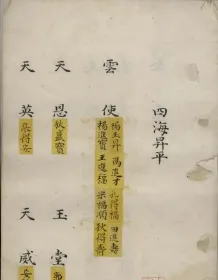 四海昇平
雲使
楊玉昇 馮進才 孔得福 田進壽
楊進寶 王進福 梁福順 狄得壽
天恩 狄盛寶 玉堂
天英 得安 天威